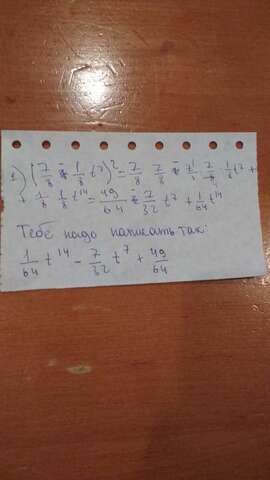 1) (7/8 - 1/8 t⁷)² = 7/8 · 7/8 - 2 · 7/8 · 1/8 t⁷ +
+ 1/8 · 1/8 t¹⁴ = 49/64 - 7/32 t⁷ + 1/64 t¹⁴
Тебе надо написать так:
1/64 t¹⁴ - 7/32 t⁷ + 49/64